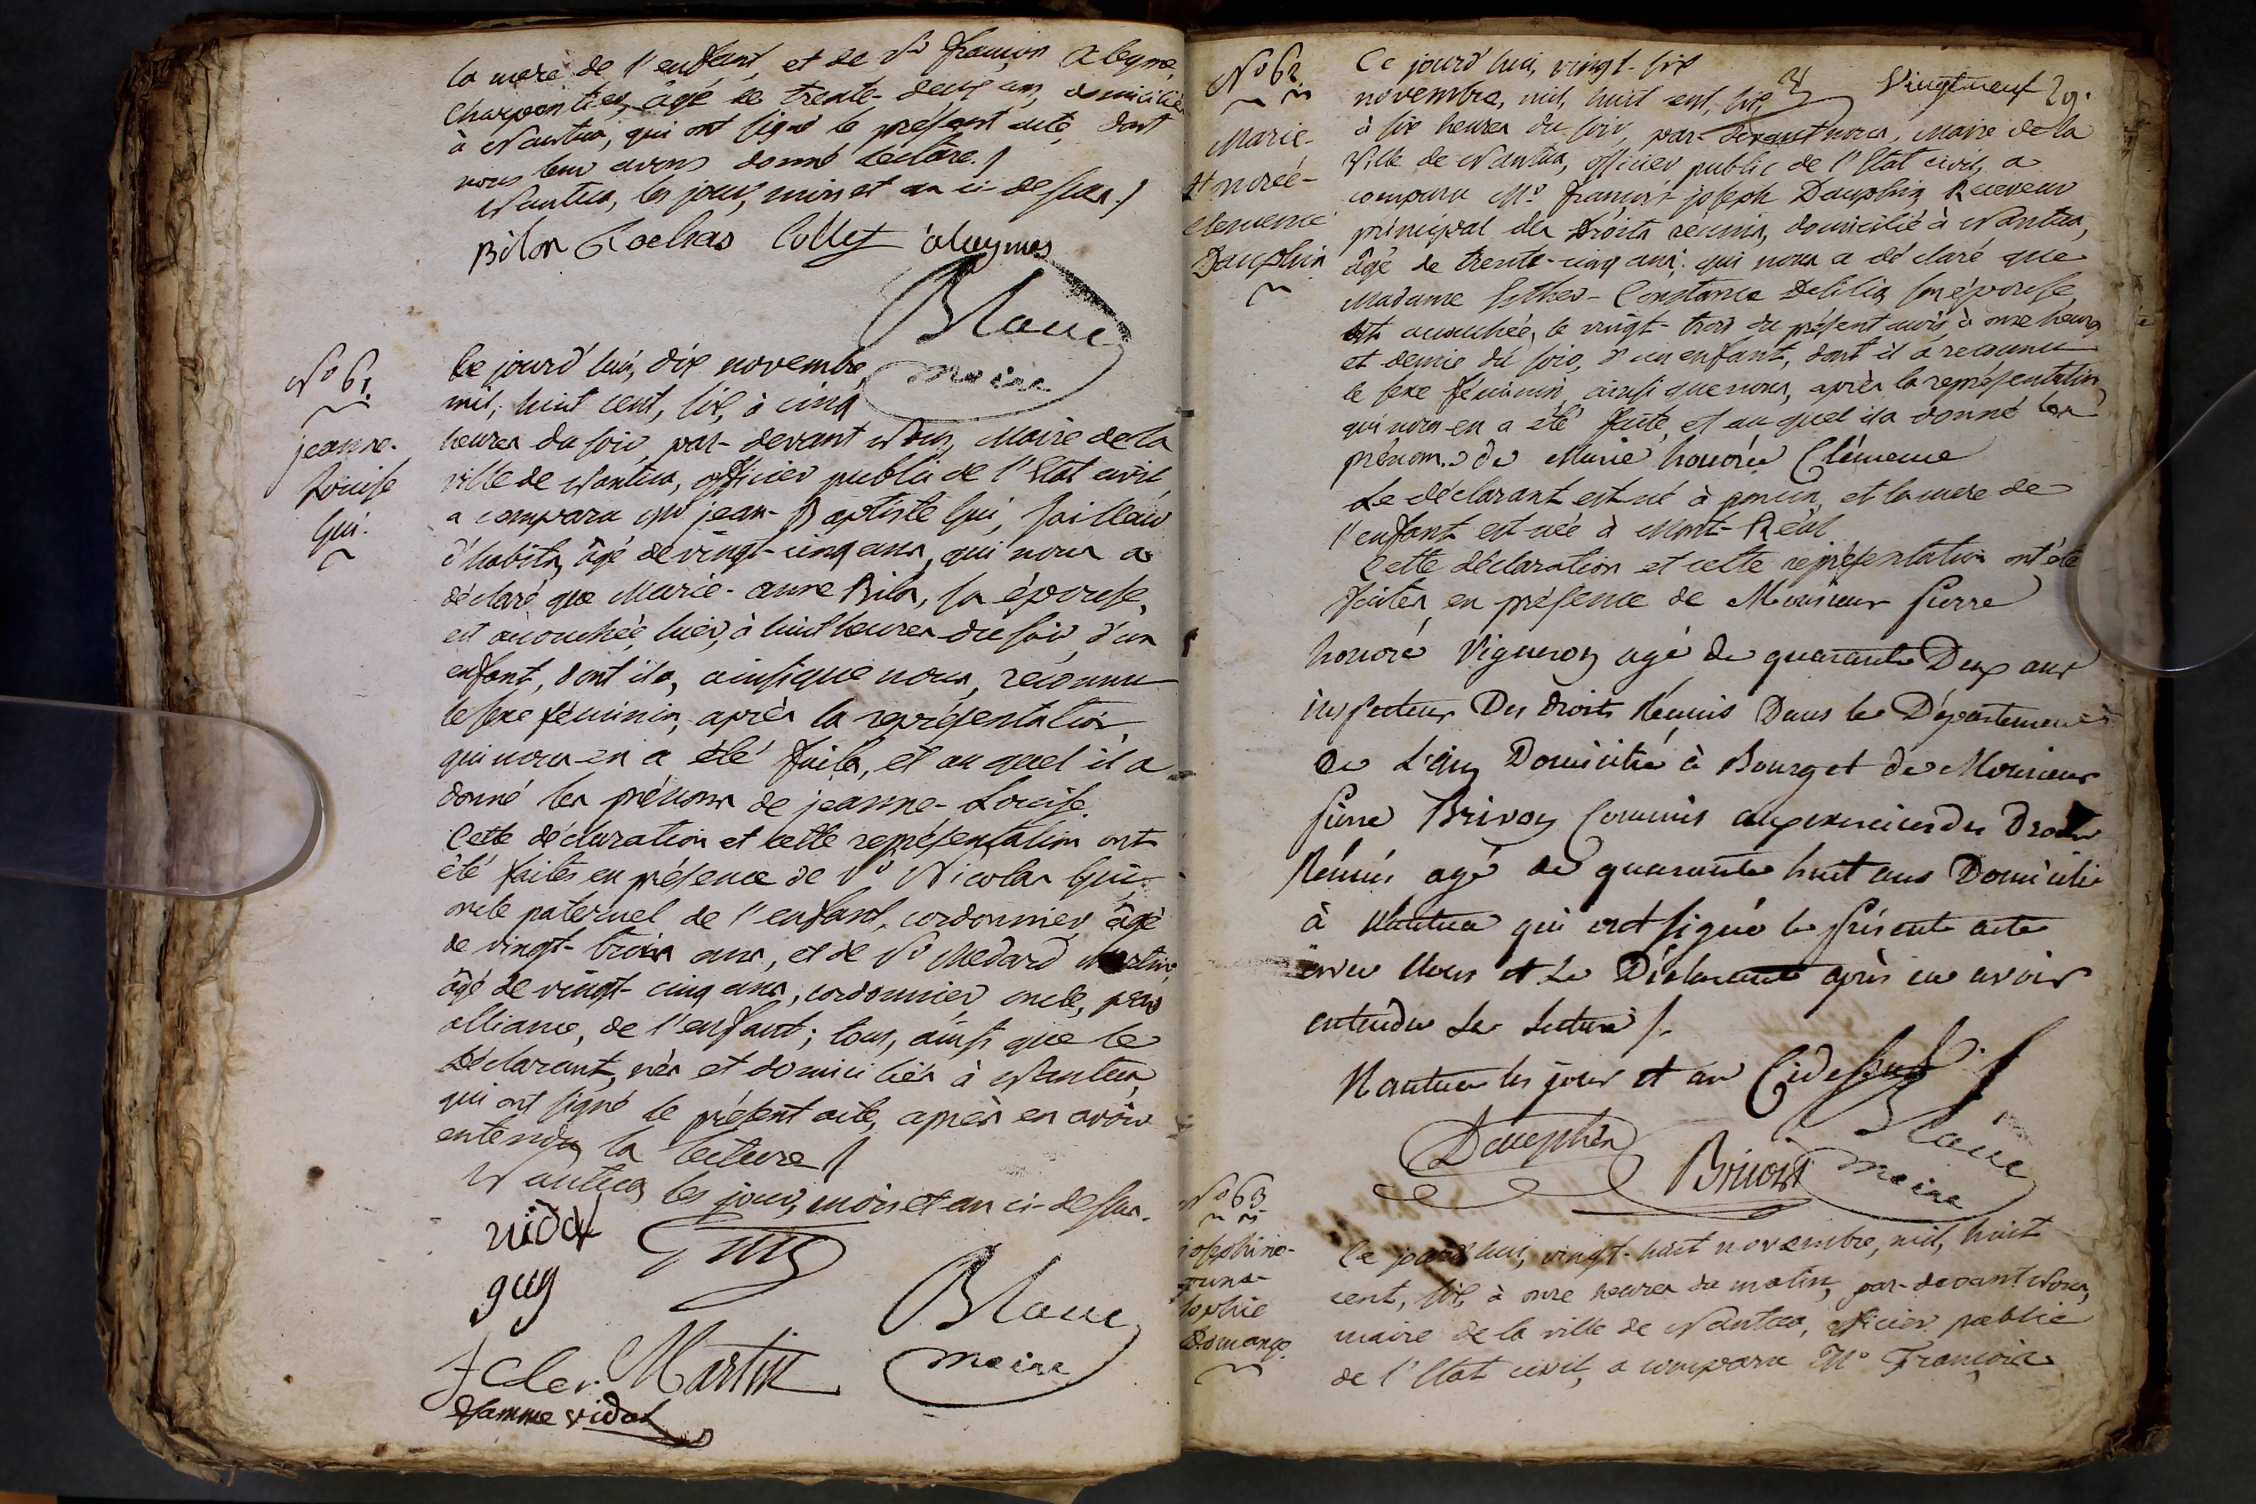 la mere de l'enfant, et de Sr françois aleyme,
Charpentier, âgé de trente-deux ans, domicilié
à Nantua, qui ont signé le présent acte, dont
nous leur avons donné lecture.
Nantua, les jour, mois et an ci-dessus.
Bilon Rochas Collet aleymes
Blanc
maire
No 61.
jeanne-
Louise
Gui.
Ce jourd'hui, dix novembre
mil, huit cent, six, à cinq
heures du soir, par-devant Nous, Maire de la
ville de Nantua, officier public de l'Etat civil,
a comparu Mr jean-Baptiste Gui, tailleur
d'habits, âgé de vingt-cinq ans, qui nous a
déclaré que Marie-anne Bilon, sa épouse,
est accouchée, hier, à huit heures du soir, d'un
enfant, dont il a, ainsi que nous, reconnu
le sexe féminin, après la représentation
qui nous en a été faite, et au quel il a
donné les prénoms de jeanne-Louise.
Cette déclaration et cette représentation ont
été faites en présence de Sr Nicolas Gui,
oncle paternel de l'enfant, cordonnier, âgé
de vingt-trois ans, et de Sr Medard Martin,
âgé de vingt-cinq ans, cordonnier, oncle, par
alliance, de l'enfant; tous, ainsi que le
Déclarant, nés et domiciliés à Nantua,
qui ont signé le présent acte, après en avoir
entendu la lecture
Nantua, les jour, mois et an ci-dessus.
vidal
guy
Martin
Blanc
maire
famme vidal
Vingtneuf 29.
No 62
Marie-
honorée-
Clemence
Dauphin
Ce jourd'hui, vingt-six
novembre, mil, huit cent, six,
à six heures du soir, par-devant nous, Maire de la
Ville de Nantua, officier public de l'Etat civil, a
comparu Mr françois-joseph Dauphin Receveur
principal des Droits réunis, domicilié à Nantua,
âgé de trente-cinq ans, qui nous a déclaré que
Madame Esther-Constance Delilia, son épouse,
est accouchée, le vingt-trois du présent mois à onze heures
et demie du soir, d'un enfant, dont il a reconnu
le sexe féminin, ainsi que nous, après la représentation
qui nous en a été faite, et au quel il a donné les
prénoms de Marie honorée Clémence
Le déclarant est né à poncin, et la mere de
l'enfant est née à Mont-Réal
Cette déclaration et cette représentation ont été
faites, en présence de Monsieur Pierre
honoré Vigneron agé de quarante Deux ans
inspecteur Des droits Réunis Dans le Département
De L'ain Domicilié à Bourg et de Monsieur
Pierre Brivon Commis aux exercices des Droits
Réunis agé de quarante huit ans Domicilié
à Nantua qui ont signé le présent acte
avec Nous et Le Déclarant après en avoir
entendu La Lecture
Nantua les jour et an Cidessus
Dauphin
Blanc
maire
No 63
josephine-
sophie
Ce jourd'hui, vingt-huit novembre, mil, huit
cent, six, à onze heures du matin, par-devant Nous,
maire de la ville de Nantua, officier public
de l'Etat civil, a comparu Mr François